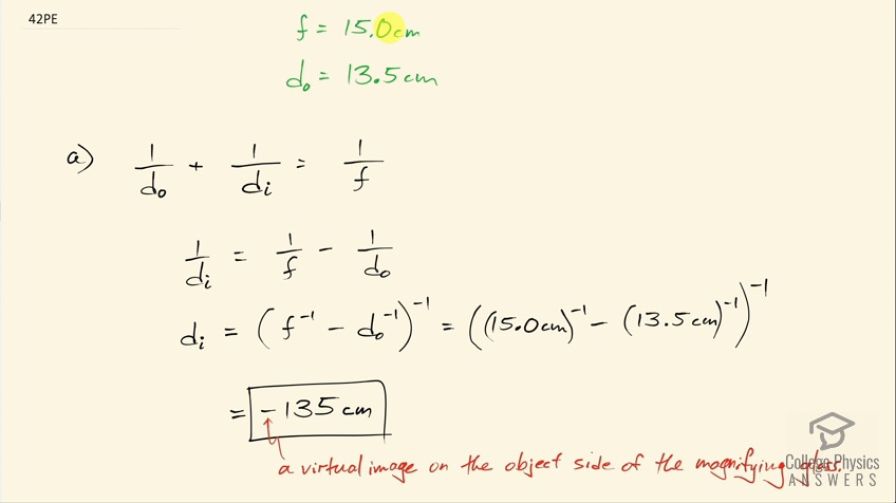 42PE
f = 15.0cm
d₀ = 13.5cm
a) 1/d₀ + 1/dᵢ = 1/f
1/dᵢ = 1/f - 1/d₀
dᵢ = (f⁻¹ - d₀⁻¹)⁻¹ = ((15.0cm)⁻¹ - (13.5cm)⁻¹)⁻¹
= -135 cm
a virtual image on the object side of the magnifying glass.
College Physics
ANSWERS